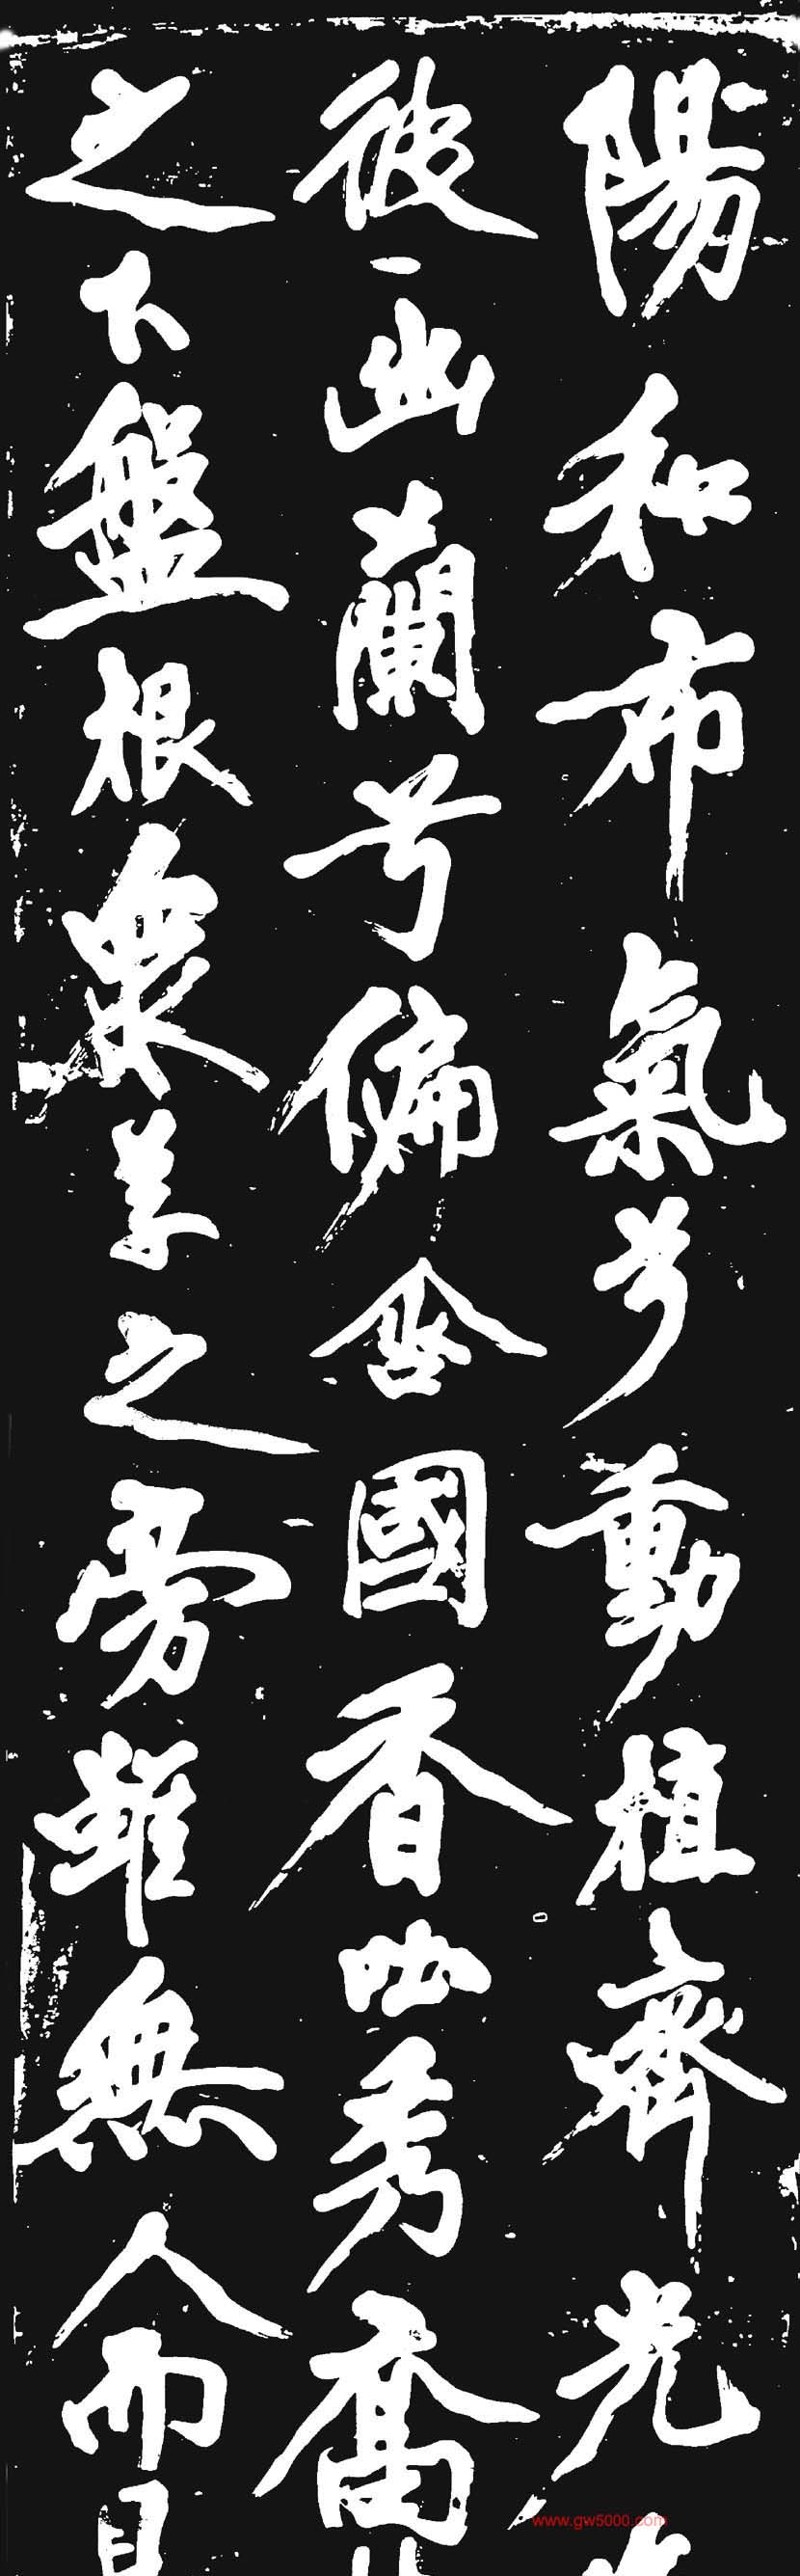 陽和布氣兮動植齊光
彼幽蘭兮偏含國香吐秀喬
之下盤根衆草之旁雖無人而
www.gw5000.com